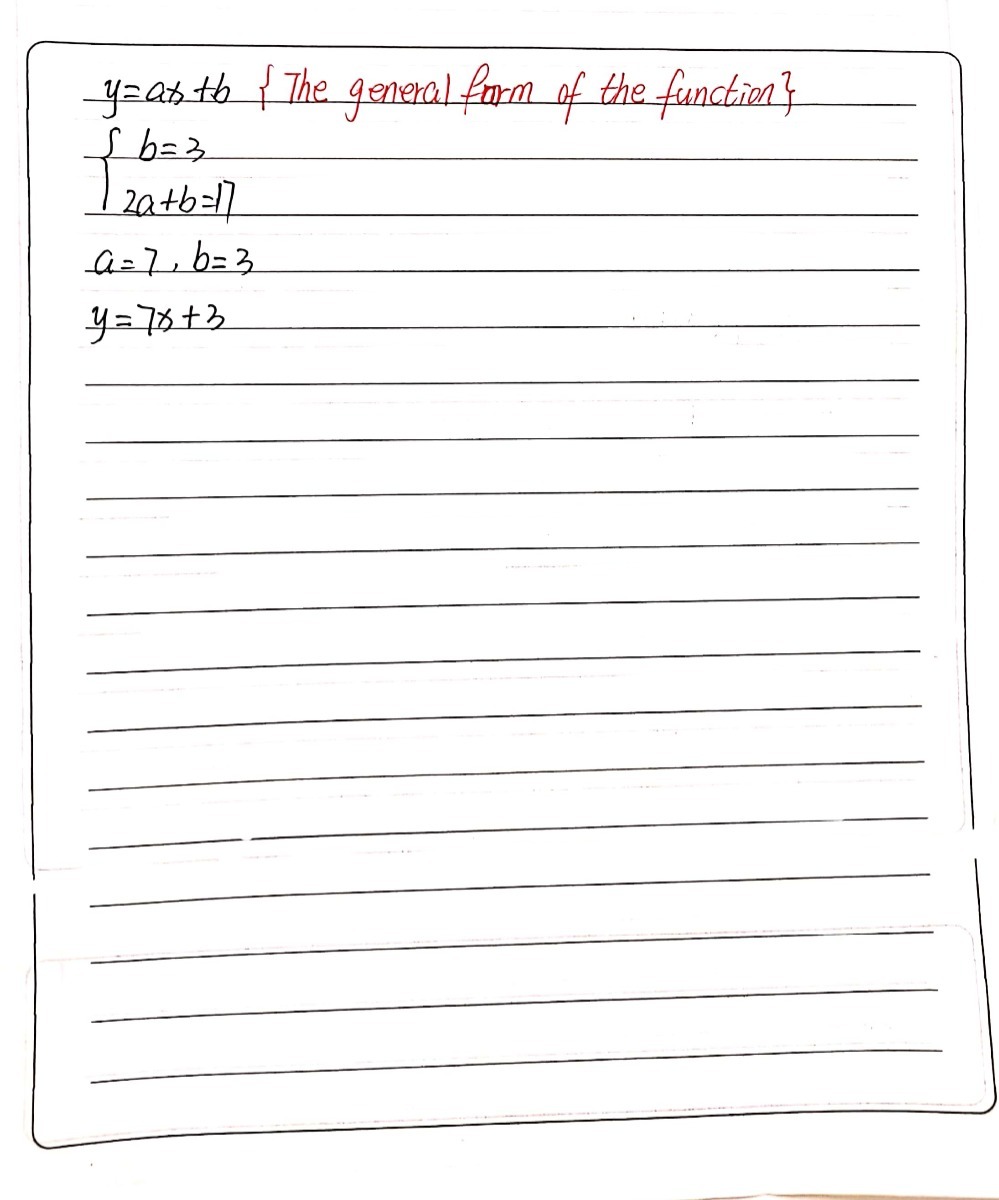 y=ax+b {The general form of the function}
{ b=3
2a+b=17
a=7, b=3
y=7x+3